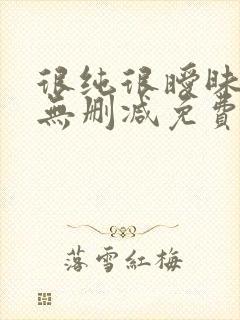 很纯很暧昧
無删减免費
落雪紅梅